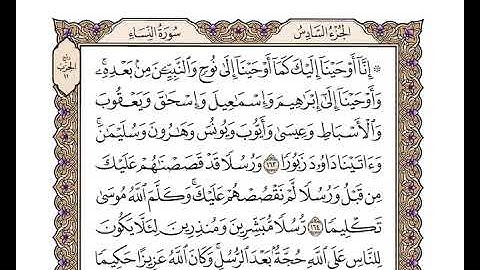 الجُزْءُ السَّادِسُ
سُورَةُ النِّسَاءِ
۞ إِنَّآ أَوْحَيْنَآ إِلَيْكَ كَمَآ أَوْحَيْنَآ إِلَىٰ نُوحٍ وَٱلنَّبِيِّـۧنَ مِنۢ بَعْدِهِۦۚ
وَأَوْحَيْنَآ إِلَىٰٓ إِبْرَٰهِيمَ وَإِسْمَٰعِيلَ وَإِسْحَٰقَ وَيَعْقُوبَ
وَٱلْأَسْبَاطِ وَعِيسَىٰ وَأَيُّوبَ وَيُونُسَ وَهَٰرُونَ وَسُلَيْمَٰنَۚ
وَءَاتَيْنَا دَاوُۥدَ زَبُورًا ١٦٣ وَرُسُلًا قَدْ قَصَصْنَٰهُمْ عَلَيْكَ
مِن قَبْلُ وَرُسُلًا لَّمْ نَقْصُصْهُمْ عَلَيْكَۚ وَكَلَّمَ ٱللَّهُ مُوسَىٰ
تَكْلِيمًا ١٦٤ رُّسُلًا مُّبَشِّرِينَ وَمُنذِرِينَ لِئَلَّا يَكُونَ
لِلنَّاسِ عَلَى ٱللَّهِ حُجَّةٌۢ بَعْدَ ٱلرُّسُلِۚ وَكَانَ ٱللَّهُ عَزِيزًا حَكِيمًا
الحِزْب
١١